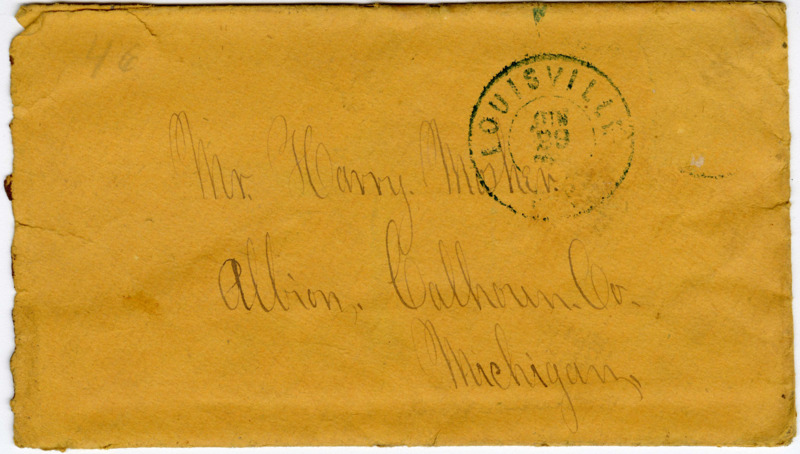 46
LOUISVILLE
JUN
Mr. Harry. Misher.
Albion, Calhoun. Co.
Michigan,